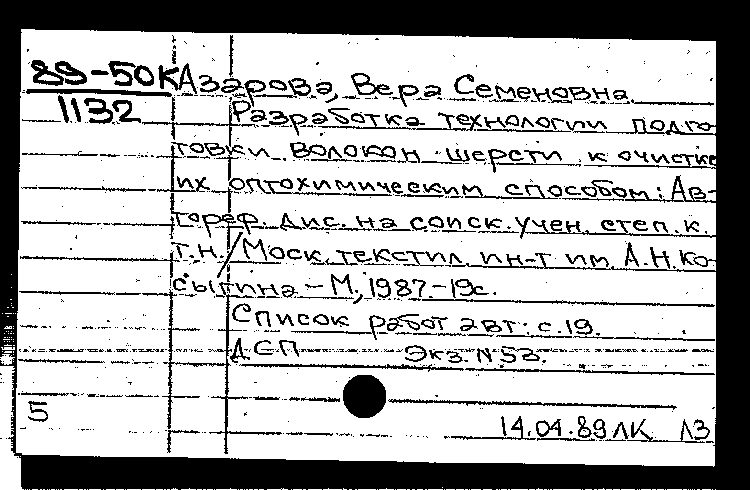 89-50К Азарова, Вера Семеновна.
1132 Разработка технологии подго-
товки волокон шерсти к очистке
их оптохимическим способом: Ав-
тореф. дис. на соиск. учен. степ. к.
т.н. / Моск. текстил. ин-т им. А.Н.Ко-
сыгина - М., 1987.-19с.
Список работ авт.: с.19.
ДСП Экз. N 53.
5
14.04.89 ЛК ЛЗ